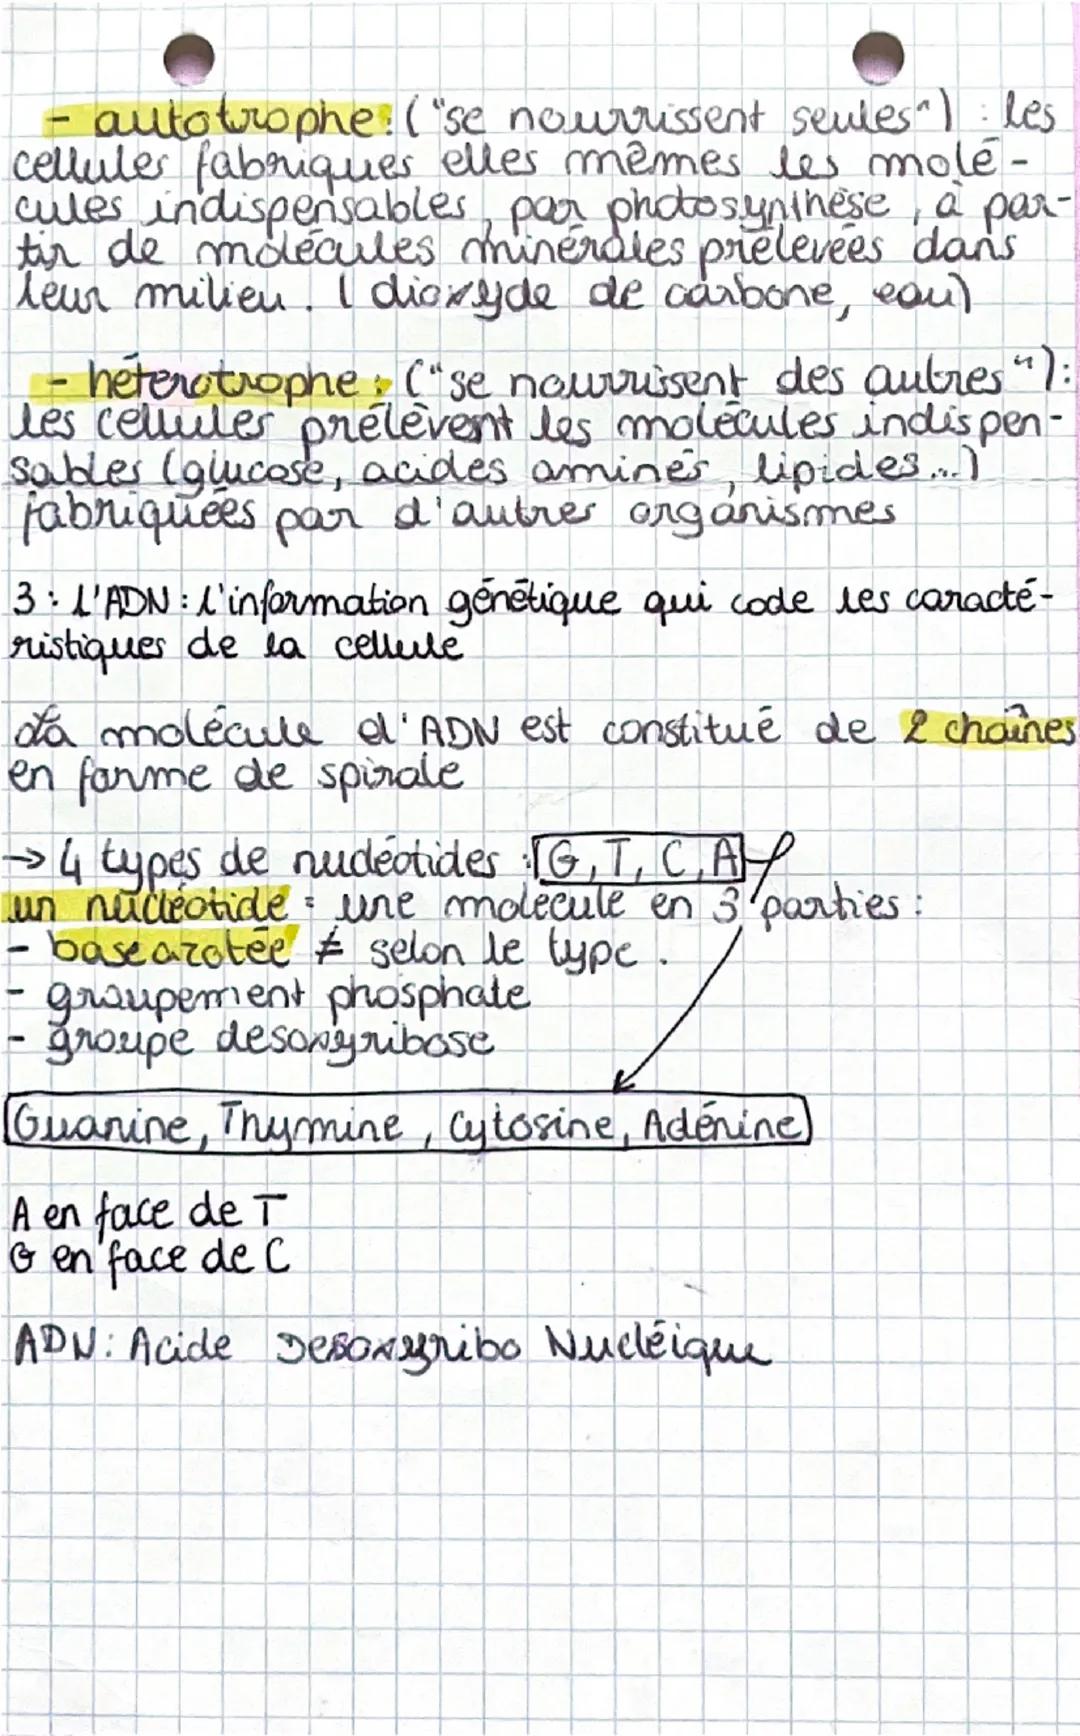 - autotrophe : ("se nourrissent seules") : les
cellules fabriques elles mêmes les molé-
cules indispensables, par photosynthèse, à par-
tir de molécules minérales prélevées dans
leur milieu. (dioxyde de carbone, eau)
- hétérotrophe : ("se nourrissent des autres") :
les cellules prélèvent les molécules indispen-
sables (glucose, acides aminés, lipides...)
fabriquées par d'autres organismes
3 : L'ADN : l'information génétique qui code les caracté-
ristiques de la cellule
La molécule d'ADN est constitué de 2 chaînes
en forme de spirale
→ 4 types de nucléotides : G, T, C, A
un nucléotide = une molécule en 3 parties :
- base azotée ≠ selon le type.
- groupement phosphate
- groupe desoxyribose
Guanine, Thymine, Cytosine, Adénine
A en face de T
G en face de C
ADN : Acide Desoxyribo Nucléique